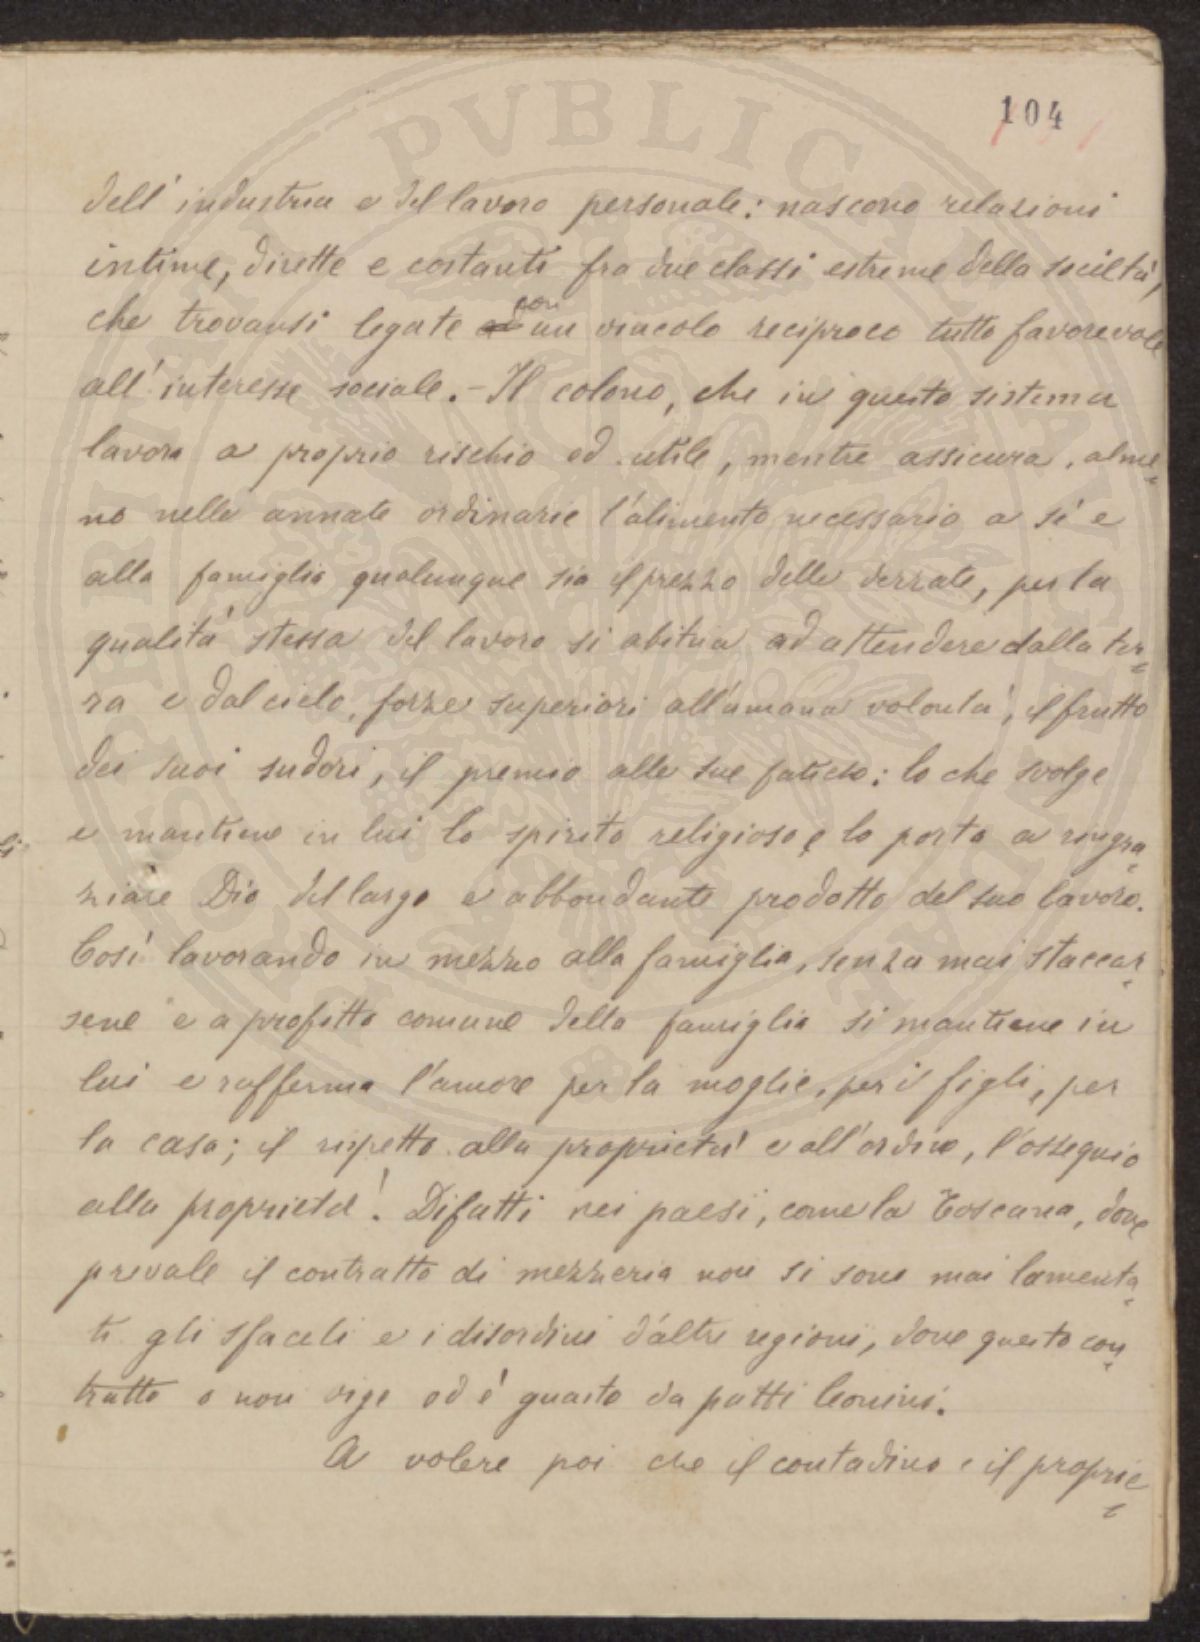 104
dell'industria e del lavoro personale: nascono relazioni
intime, dirette e costanti fra due classi estreme della società,
che trovansi legate ad con un vincolo reciproco tutto favorevole
all'interesse sociale. - Il colono, che in questo sistema
lavora a proprio rischio ed utile, mentre assicura, alme-
no nelle annate ordinarie l'alimento necessario a sé e
alla famiglia qualunque sia il prezzo delle derrate, per la
qualità stessa del lavoro si abitua ad attendere dalla ter-
ra e dal cielo, forze superiori all'umana volontà, il frutto
dei suoi sudori, il premio alle sue fatiche: lo che svolge
e mantiene in lui lo spirito religioso e lo porta a ringra-
ziare Dio del largo e abbondante prodotto del suo lavoro.
Così lavorando in mezzo alla famiglia, senza mai staccar-
sene e a profitto comune della famiglia si mantiene in
lui e rafferma l'amore per la moglie, per i figli, per
la casa; il rispetto alla proprietà e all'ordine, l'ossequio
alla proprietà. Difatti nei paesi, come la Toscana, dove
prevale il contratto di mezzeria non si sono mai lamenta-
ti gli sfaceli e i disordini d'altre regioni, dove questo con-
tratto o non vige od è guasto da patti leonini.
A volere poi che il contadino e il proprie-
PVBLICA